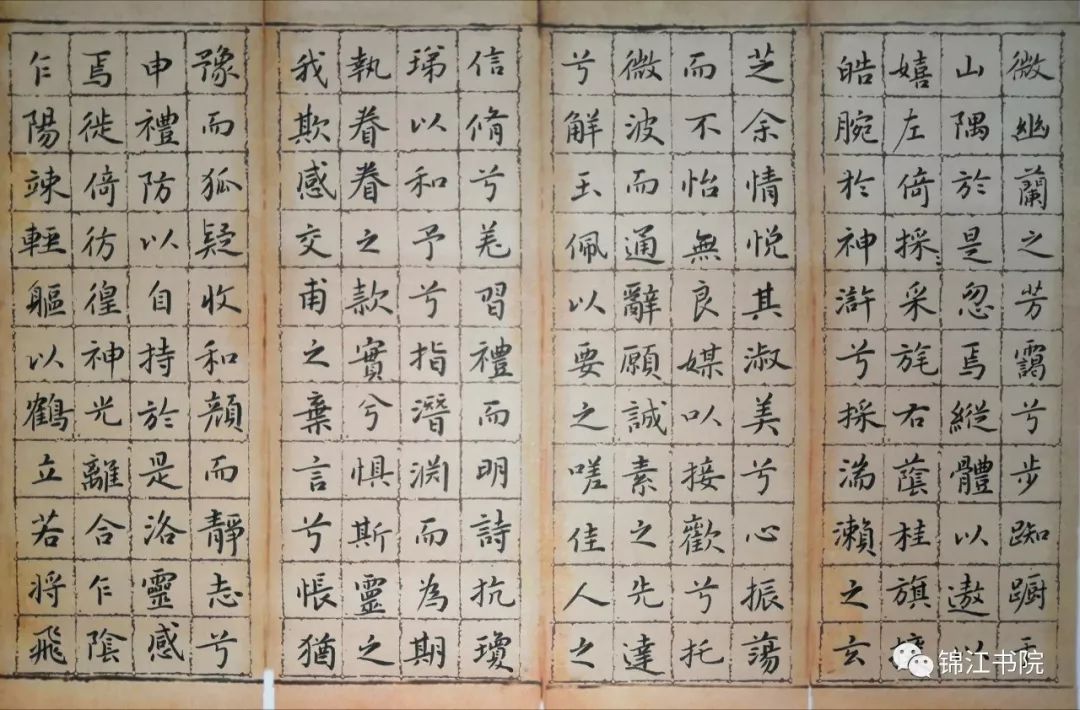 微幽蘭之芳靄兮步踟蹰
山隅於是忽焉縱體以遨以
嬉左倚採采旄右蔭桂旗
皓腕於神滸兮採湍瀨之玄
芝余情悦其淑美兮心振蕩
而不怡無良媒以接歡兮托
微波而通辭願誠素之先達
兮解玉佩以要之嗟佳人之
信脩兮羌習禮而明詩抗瓊
珶以和予兮指潛渊而為期
執眷眷之款實兮懼斯靈之
我欺感交甫之棄言兮悵猶
豫而狐疑收和顔而靜志兮
申禮防以自持於是洛靈感
焉徙倚彷徨神光離合乍陰
乍陽竦輕軀以鶴立若将飛
锦江书院